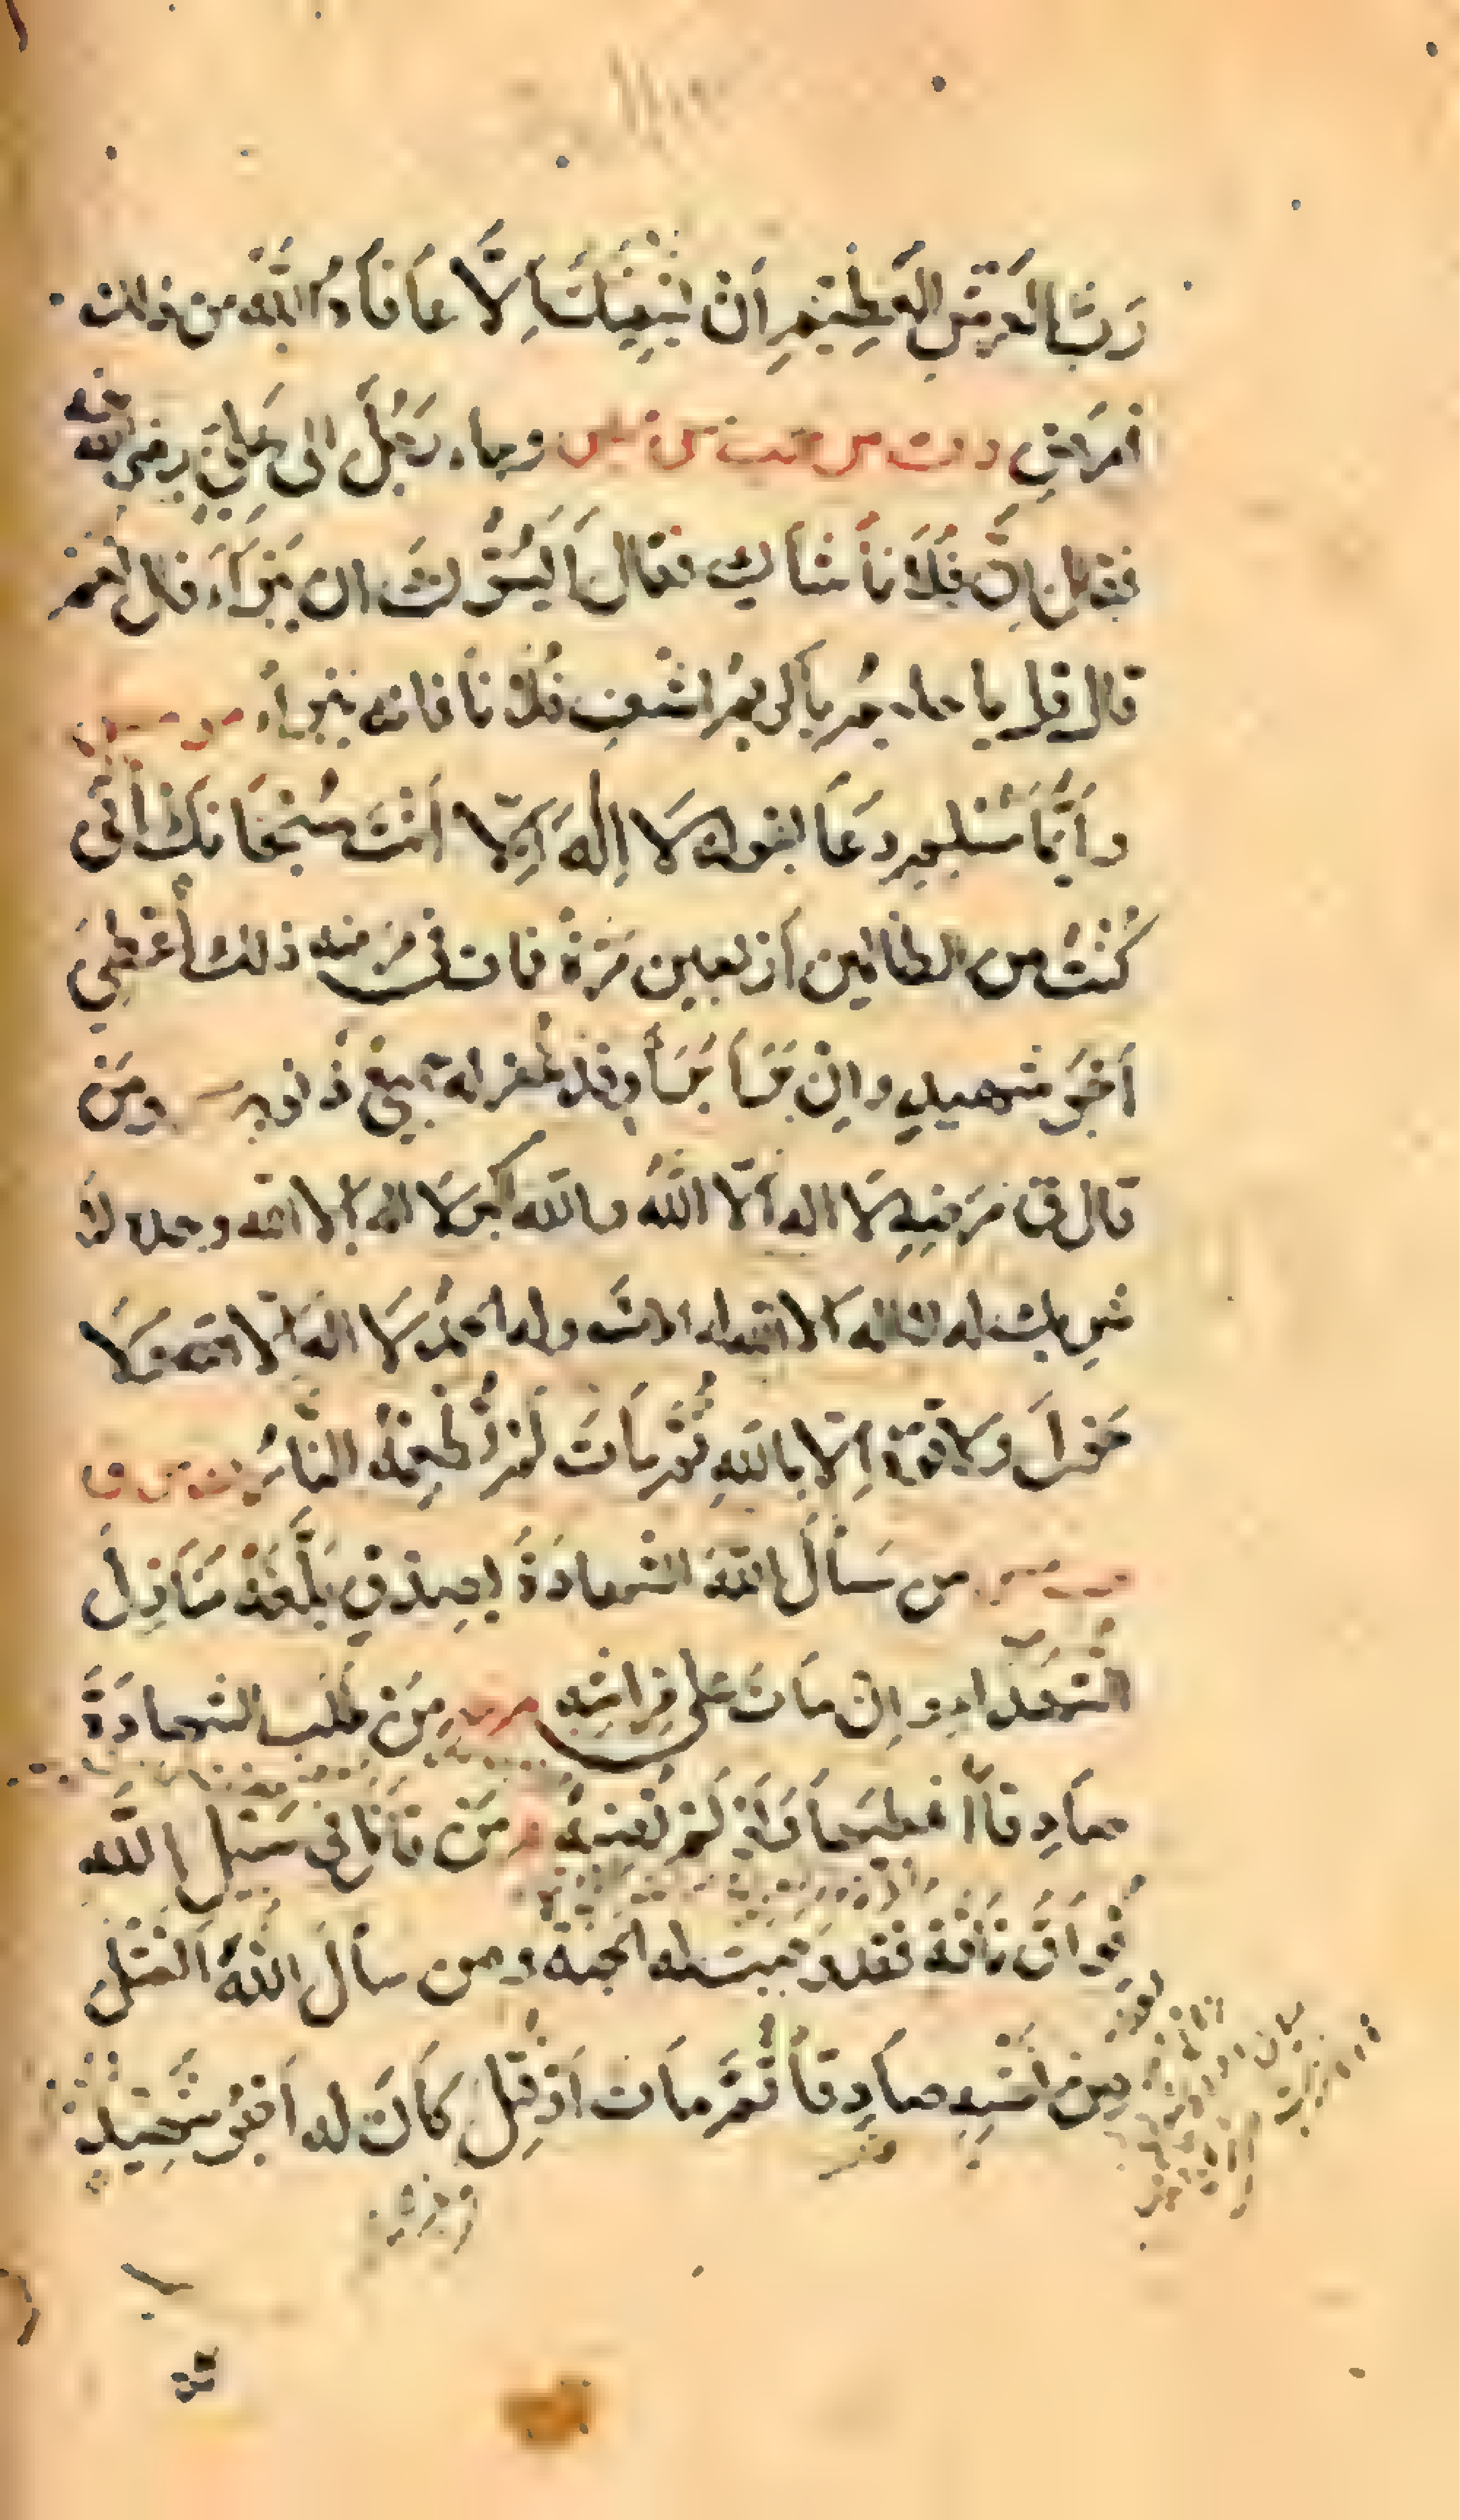 رَبَّ العَرْشِ العَظِيْمِ أنْ يَشْفِيَكَ إلَّا عَافَاهُ اللَّهُ من ذلك
المَرَضِ د ت س حب مس مص وجاء رَجُلٌ الى عَلِيٍّ رضي الله عنه
فقال إنَّ فُلَاناً شاكٍ فقال أيَسُرُّكَ ان يَبْرَأَ قال نعم
قال قل يا حليم يا كريم اشْفِ فُلاناً فانه يَبْرَأُ
وأيُّمَا مُسْلِمٍ دَعَا بقوله لَا إلهَ إلَّا أنْتَ سُبْحَانَكَ إنّي
كُنْتُ من الظالمين أرْبعين مَرَّةً فمات في مرضه ذلك أُعْطِيَ
أجْرَ شهيدٍ وإنْ بَرَأَ بَرَأَ وقد غُفِرَ له جميعُ ذُنوبِه ومَنْ
قال في مَرَضِهِ لَا اله إلّا اللهُ والله أكبر لَا اله إلا الله وحده لَا
شريك له لا اله الا الله له الملك وله الحمدُ لَا الهَ إلّا الله ولَا
حَوْلَ ولا قُوَّةَ إلّا باللهِ ثُمَّ مَاتَ لَمْ تَطْعَمْهُ النَّارُ
من سَألَ اللهَ الشهادَةَ بصِدْقٍ بَلَّغَهُ مَنَازِلَ
الشُّهَدَاءِ وإنْ مَاتَ على فِرَاشِهِ مَنْ طَلَبَ الشهادَةَ
صَادِقاً أُعْطِيَهَا وَلَوْ لَمْ تُصِبْهُ مَنْ قَاتَلَ في سَبِيْلِ اللهِ
فُوَاقَ نَاقَةٍ فقد وَجَبَتْ له الجنة ومن سألَ اللهَ القَتْلَ
مِنْ نَفْسِهِ صَادِقاً ثُمَّ مَاتَ أوْ قُتِلَ كَانَ له أجْرُ شَهِيْدٍ